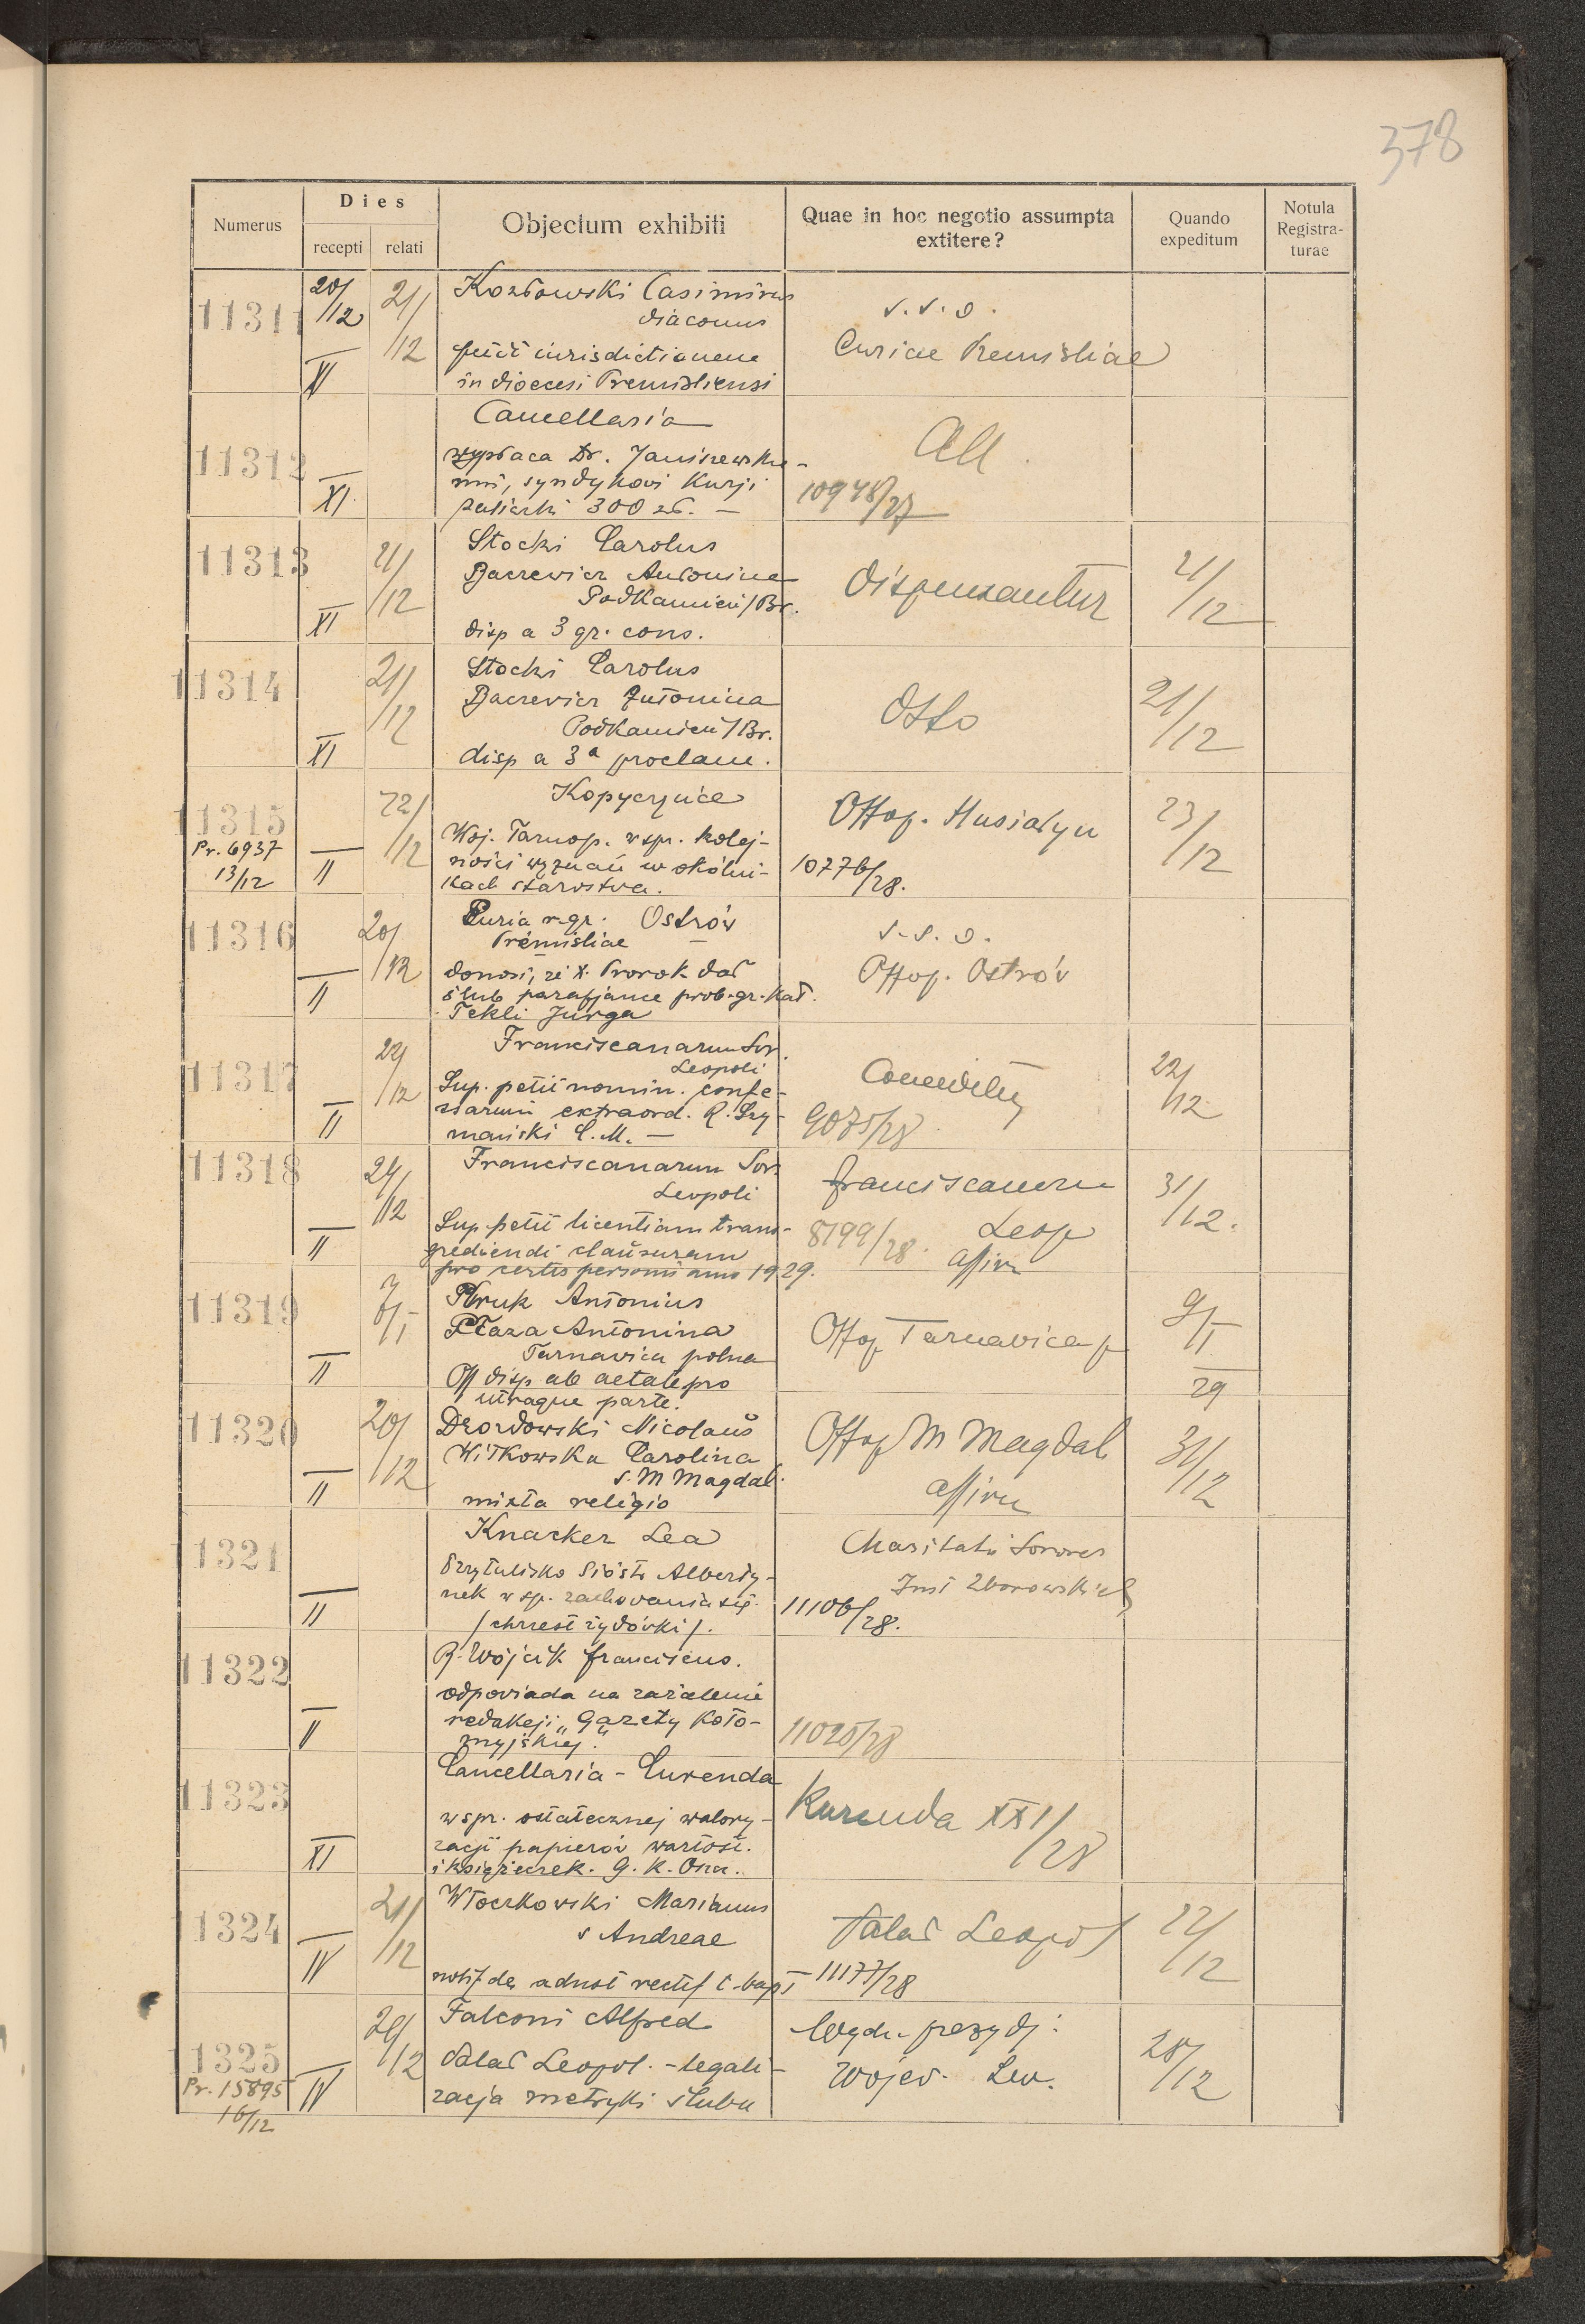 378
Numerus
Dies
recepti relati
Objectum exhibiti
Quae in hoc negotio assumpta
extitere?
Quando
expeditum
Notula
Registra-
turae
11311
20/12
21/12
XI
Kozłowski Casimirus
diaconus
petit iurisdictionem
in dioecesi Premisliensi
s.s.o.
Curiae Premisliae
11312
XI
Cancellaria
wypłaca Dr. Janiszewskie-
mu, syndykowi Kurji
300 zł. —
All.
10948/27
11313
21/12
XI
Stocki Carolus
Bacrewicz Antonina
Podkamień/Br.
disp a 3 gr. cons.
Dispensantur
21/12
11314
21/12
XI
Stocki Carolus
Bacrewicz Antonina
Podkamień/Br.
disp a 3ª proclam.
Otto
21/12
11315
Pr. 6937
13/12
II
22/12
Kopyczyńce
Woj. Tarnop. w spr. kolej-
ności wyznań w okólni-
kach starostwa.
Offop. Husiatyn
10776/28.
23/12
11316
II
20/12
Curia r. gr. Ostrów
Premisliae
donosi, że X. Prorok dał
ślub parafjance prob. gr. kat.
Tekli Jurga
s.s.o.
Offop. Ostrów
11317
II
22/12
Franciscanarum Sor.
Leopoli
Sup. petit nomin. confe-
ssarium extraord. R. Szy-
mański C.M. —
9075/28
22/12
11318
II
24/12
Franciscanarum Sor.
Leopoli
Sup. petit licentiam trans-
grediendi clausuram
pro certis personis anno 1929.
Franciscanern
8199/28. Leop
affirm
31/12.
11319
II
Kruk Antonius
Płaza Antonina
Tarnavica polna
Off disp ab aetate pro
utraque parte.
Offop Tarnavica p
9/I
29
11320
II
20/12
Dzordowski Nicolaus
Witkowska Carolina
S. M Magdal.
mixta religio
Offop M Magdal
affirm
31/12
11321
II
Knacker Lea
Przytulisko Sióstr Alberty-
nek w sp. zachowania się.
/chrzest żydówki/.
Charitatis Sorores
Inst Zborowskich
11106/28.
11322
II
R. Wójcik Franciscus.
odpowiada na zażalenie
redakcji „Gazety Koło-
myjskiej."
11025/28
11323
XI
Cancellaria - Curenda
w spr. ostatecznej walory-
zacji papierów wartość.
i książeczek. G. K. Osz.
Kurenda XXI/28
11324
IV
21/12
Włoczkowski Marianus
s Andreae
notif de adnot rectif l. bapt
Palat Leopol
11177/28
22/12
11325
Pr. 15895
16/12
IV
20/12
Falconi Alfred
Palat Leopol. - legali-
zacja metryki ślubu
Wydz. prezydj:
Wojew. Lw.
28/12